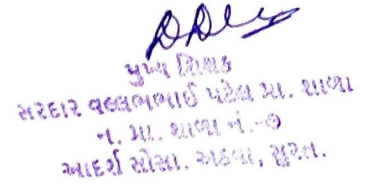 મુખ્ય શિક્ષક
સરદાર વલ્લભભાઈ પટેલ પ્રા. શાળા
ન. પ્રા. શાળા નં.-
આદર્શ સોસા. અઠવા, સુરત.